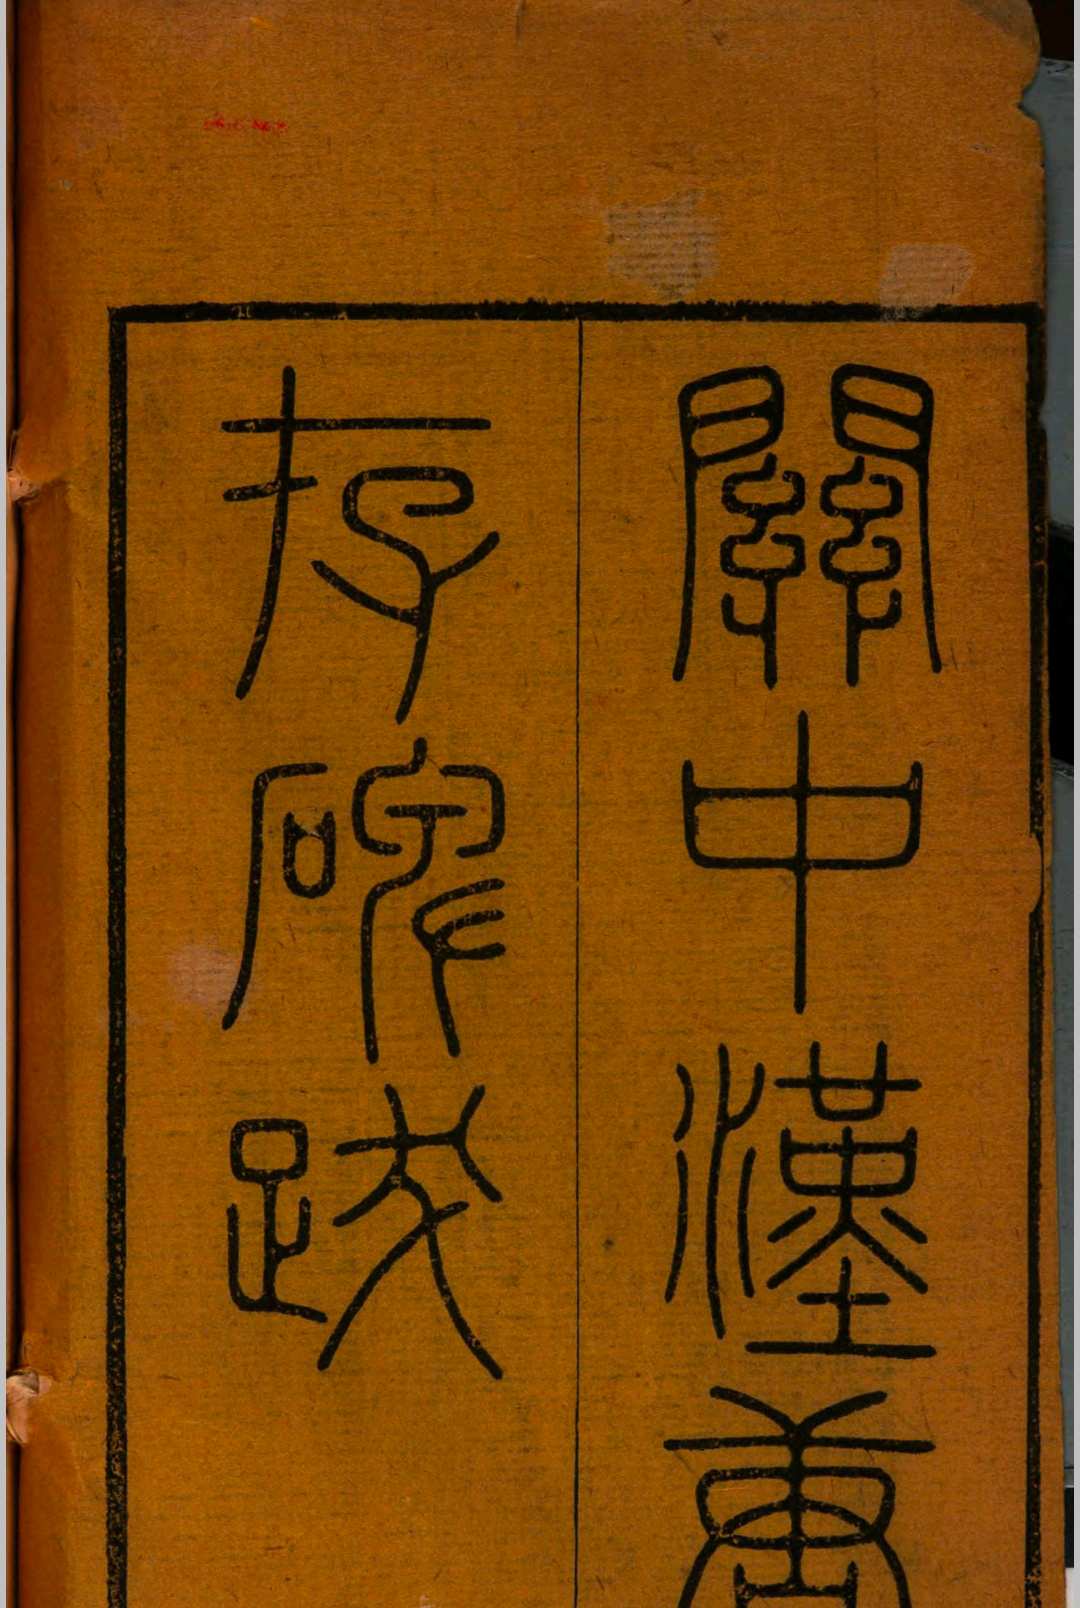 關中漢唐
存碑跋